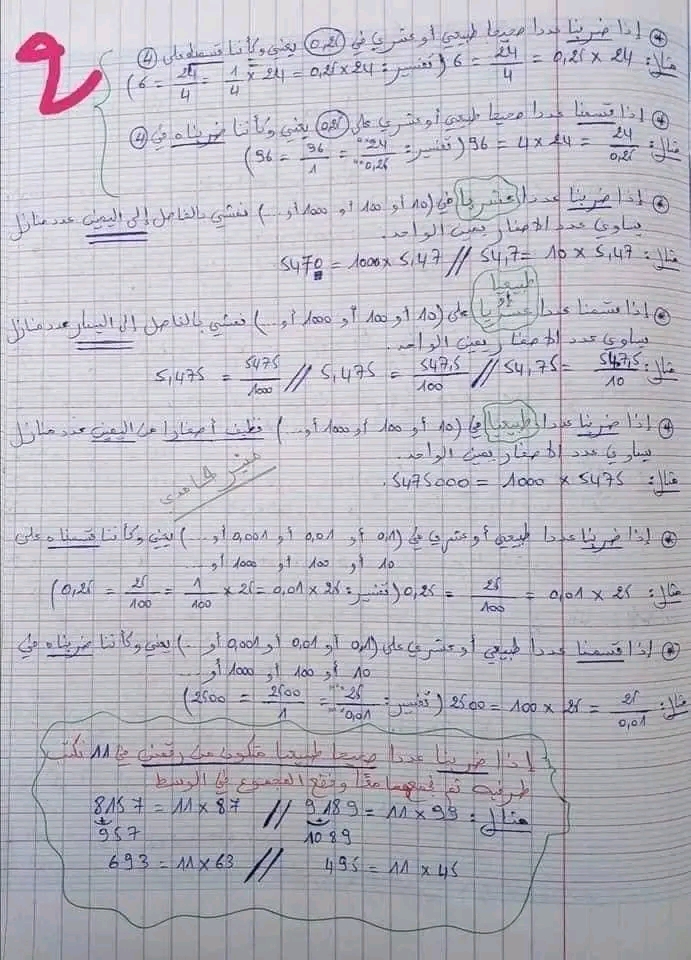 * إذا ضربنا عددا صحيحا طبيعي أو عشري في 0,25 يعني وكأننا قسمناه على 4
مثال: 24 × 0,25 = 24/4 = 6 (تفسير: 24 × 0,25 = 24 × 1/4 = 24/4 = 6)
2
* إذا قسمنا عددا صحيحا طبيعي أو عشري على 0,25 يعني وكأننا ضربناه في 4
مثال: 24/0,25 = 24 × 4 = 96 (تفسير: 24/0,25 = 96/1 = 96)
* إذا ضربنا عددا عشريا في (10 أو 100 أو 1000 أو ...) نمشي بالفاصل إلى اليمين عدد منازل
يساوي عدد الأصفار يمين الواحد.
مثال: 5,47 × 10 = 54,7 // 5,47 × 1000 = 5470.
طبيعيا
أو
* إذا قسمنا عددا عشريا على (10 أو 100 أو 1000 أو ...) نمشي بالفاصل إلى اليسار عدد منازل
يساوي عدد الأصفار يمين الواحد.
مثال: 547,5/10 = 54,75 // 547,5/100 = 5,475 // 5475/1000 = 5,475
* إذا ضربنا عددا طبيعيا في (10 أو 100 أو 1000 أو ...) نضيف أصفارا عن اليمين عدد منازل
يساوي عدد الأصفار يمين الواحد.
مثال: 5475 × 1000 = 5475000.
* إذا ضربنا عددا طبيعي أو عشري في (0,1 أو 0,01 أو 0,001 أو ...) يعني وكأننا قسمناه على
10 أو 100 أو 1000 أو ...
مثال: 25 × 0,01 = 25/100 = 0,25 (تفسير: 25 × 0,01 = 25 × 1/100 = 25/100 = 0,25)
* إذا قسمنا عددا طبيعي أو عشري على (0,1 أو 0,01 أو 0,001 أو ...) يعني وكأننا ضربناه في
10 أو 100 أو 1000 أو ...
مثال: 25/0,01 = 25 × 100 = 2500 (تفسير: 25/0,01 = 2500/1 = 2500)
إذا ضربنا عددا صحيحا طبيعيا متكون من رقمين في 11 نكتب
طرفيه ثم نجمعهما معًا ونضع المجموع في الوسط
مثال: 99 × 11 = 9189 // 87 × 11 = 8157
1089
957
45 × 11 = 495 // 63 × 11 = 693